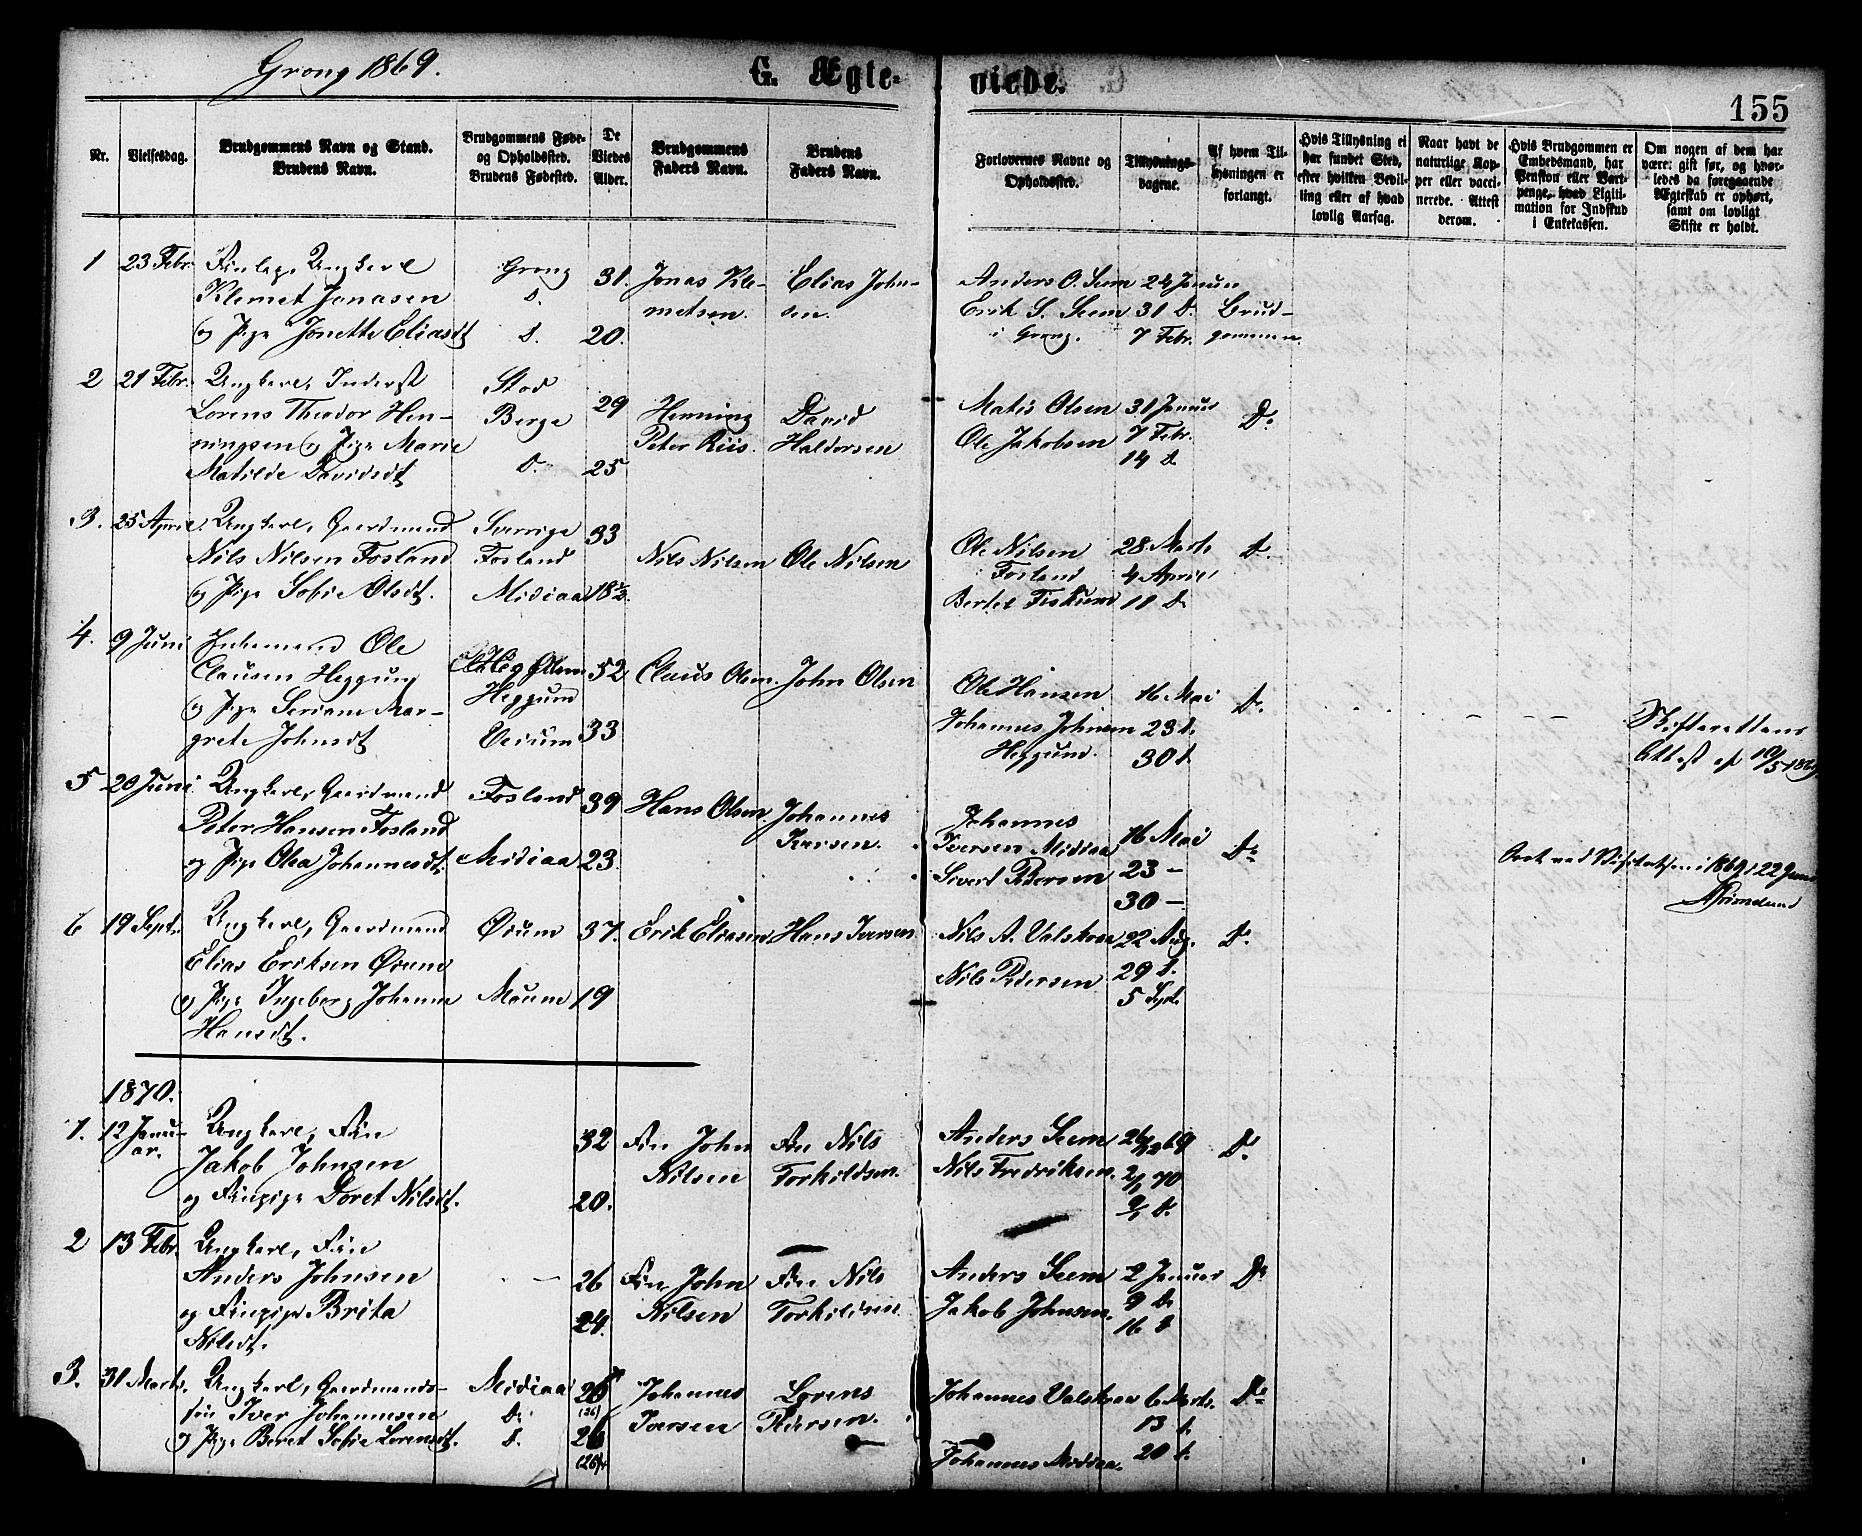 Grong 1869.
G. Ægte-
viede.
155
Nr.
Vielsesdag.
Brudgommens Navn og Stand.
Brudens Navn.
Brudgommens Føde-
og Opholdssted.
Brudens Fødested.
De
Viedes
Alder.
Brudgommens
Faders Navn.
Brudens
Faders Navn.
Forlovernes Navne og
Opholdssted.
Tillysnings-
dagene.
Af hvem Til-
lysningen er
forlangt.
Hvis Tillysning ei
har fundet Sted,
efter hvilken Bevil-
ling eller af hvad
lovlig Aarsag.
Naar havt de
naturlige Kop-
per eller vacci-
nerede. Attest
derom.
Hvis Brudgommen er
Embedsmand, har
Pension eller Vart-
penge, hvad Ligiti-
mation for Indskud
i Enkekassen.
Om nogen af dem har
været gift før, og hvor-
ledes da foregaaende
Ægteskab er ophørt,
samt om lovligt
Skifte er holdt.
1 23 Febr.
Ungkarl
Klemet Jonasen
og Pige Jonetta Eliasdt
Grong
D.
D.
31.
20.
Jonas Kle-
metsen.
Elias John-
sen.
Anders O. Seem
Erik S. Seem
i Grong.
24 Januar
31 D.
7 Febr.
Brud-
gommen.
2 21 Febr.
Ungkarl, Inderst
Lorens Theodor Hen-
ningsen og Pige Marie
Matilde Davidsdt
Stod
Berge
D.
29
25
Henning
Peter Riis.
David
Haldorsen
Matis Olsen
Ole Jakobsen
31 Januar
7 Febr.
14 D.
Do
3. 25 April
Ungkarl, Gaardmand
Nils Nilsen Fosland
og Pige Sofie Olsdt.
Sverrige
Fosland
Mediaa
33
18½.
Nils Nilsen
Ole Nilsen
Ole Nilsen
Fosland
Bertel Fiskum
28 Marts
4 April
11 D.
D.
4. 9 Juni
Enkemand Ole
Clausen Heggum
og Pige Seriane Mar-
grete Johnsdt
Heggum
52
33
Claus Olsen.
John Olsen
Ole Hansen
Johannes Johnsen
Heggum.
16 Mai
23 D.
30 D.
D.
Skifterettens
Attest af 10/5 1869
5 20 Juni
Ungkarl, Gaardmand
Peter Hansen Fosland
og Pige Olea Johannesdt.
Fosland
Mediaa
39
23.
Hans Olsen.
Johannes
Iversen.
Johannes
Iversen Mediaa
Sivert Pedersen
16 Mai
23 —
30 —
Do
Seet ved Visitatsen i 1869, 22 Juni
Grimelund
6 19 Septr
Ungkarl, Gaardmand
Elias Eriksen Øium
og Pige Ingeborg Johanna
Hansdt.
Øium
Moum
37.
19
Erik Eliasen
Hans Iversen
Nils A. Valskraa
Nils Pedersen
22 Aug.
29 D.
5 Sept.
D.
1870.
1. 12 Janu-
ar.
Ungkarl, Fin
Jakob Johnsen
og Finpige Doret Nilsdt.
32
20.
Fin John
Nilsen
Fin Nils
Torkildsen.
Anders Seem
Nils Fredriksen.
26/12 69
2/1 70
9/1 D.
D.
2 13 Febr.
Ungkarl, Fin
Anders Johnsen
og Finpige Brita
Nilsdt.
26
24.
Fin John
Nilsen
Fin Nils
Torkildsen.
Anders Seem
Jakob Johnsen.
2 Januar
9 D.
16 D.
Do
3. 31 Marts.
Ungkarl, Gaardmands-
søn Iver Johannesen
og Pige Beret Sofie Lorensdt.
Mediaa
D.
D.
26
(26)
26
(26)
Johannes
Iversen
Lorens
Pedersen.
Johannes Valskraa
Johannes Mediaa.
6 Marts.
13 D.
20 D.
Do